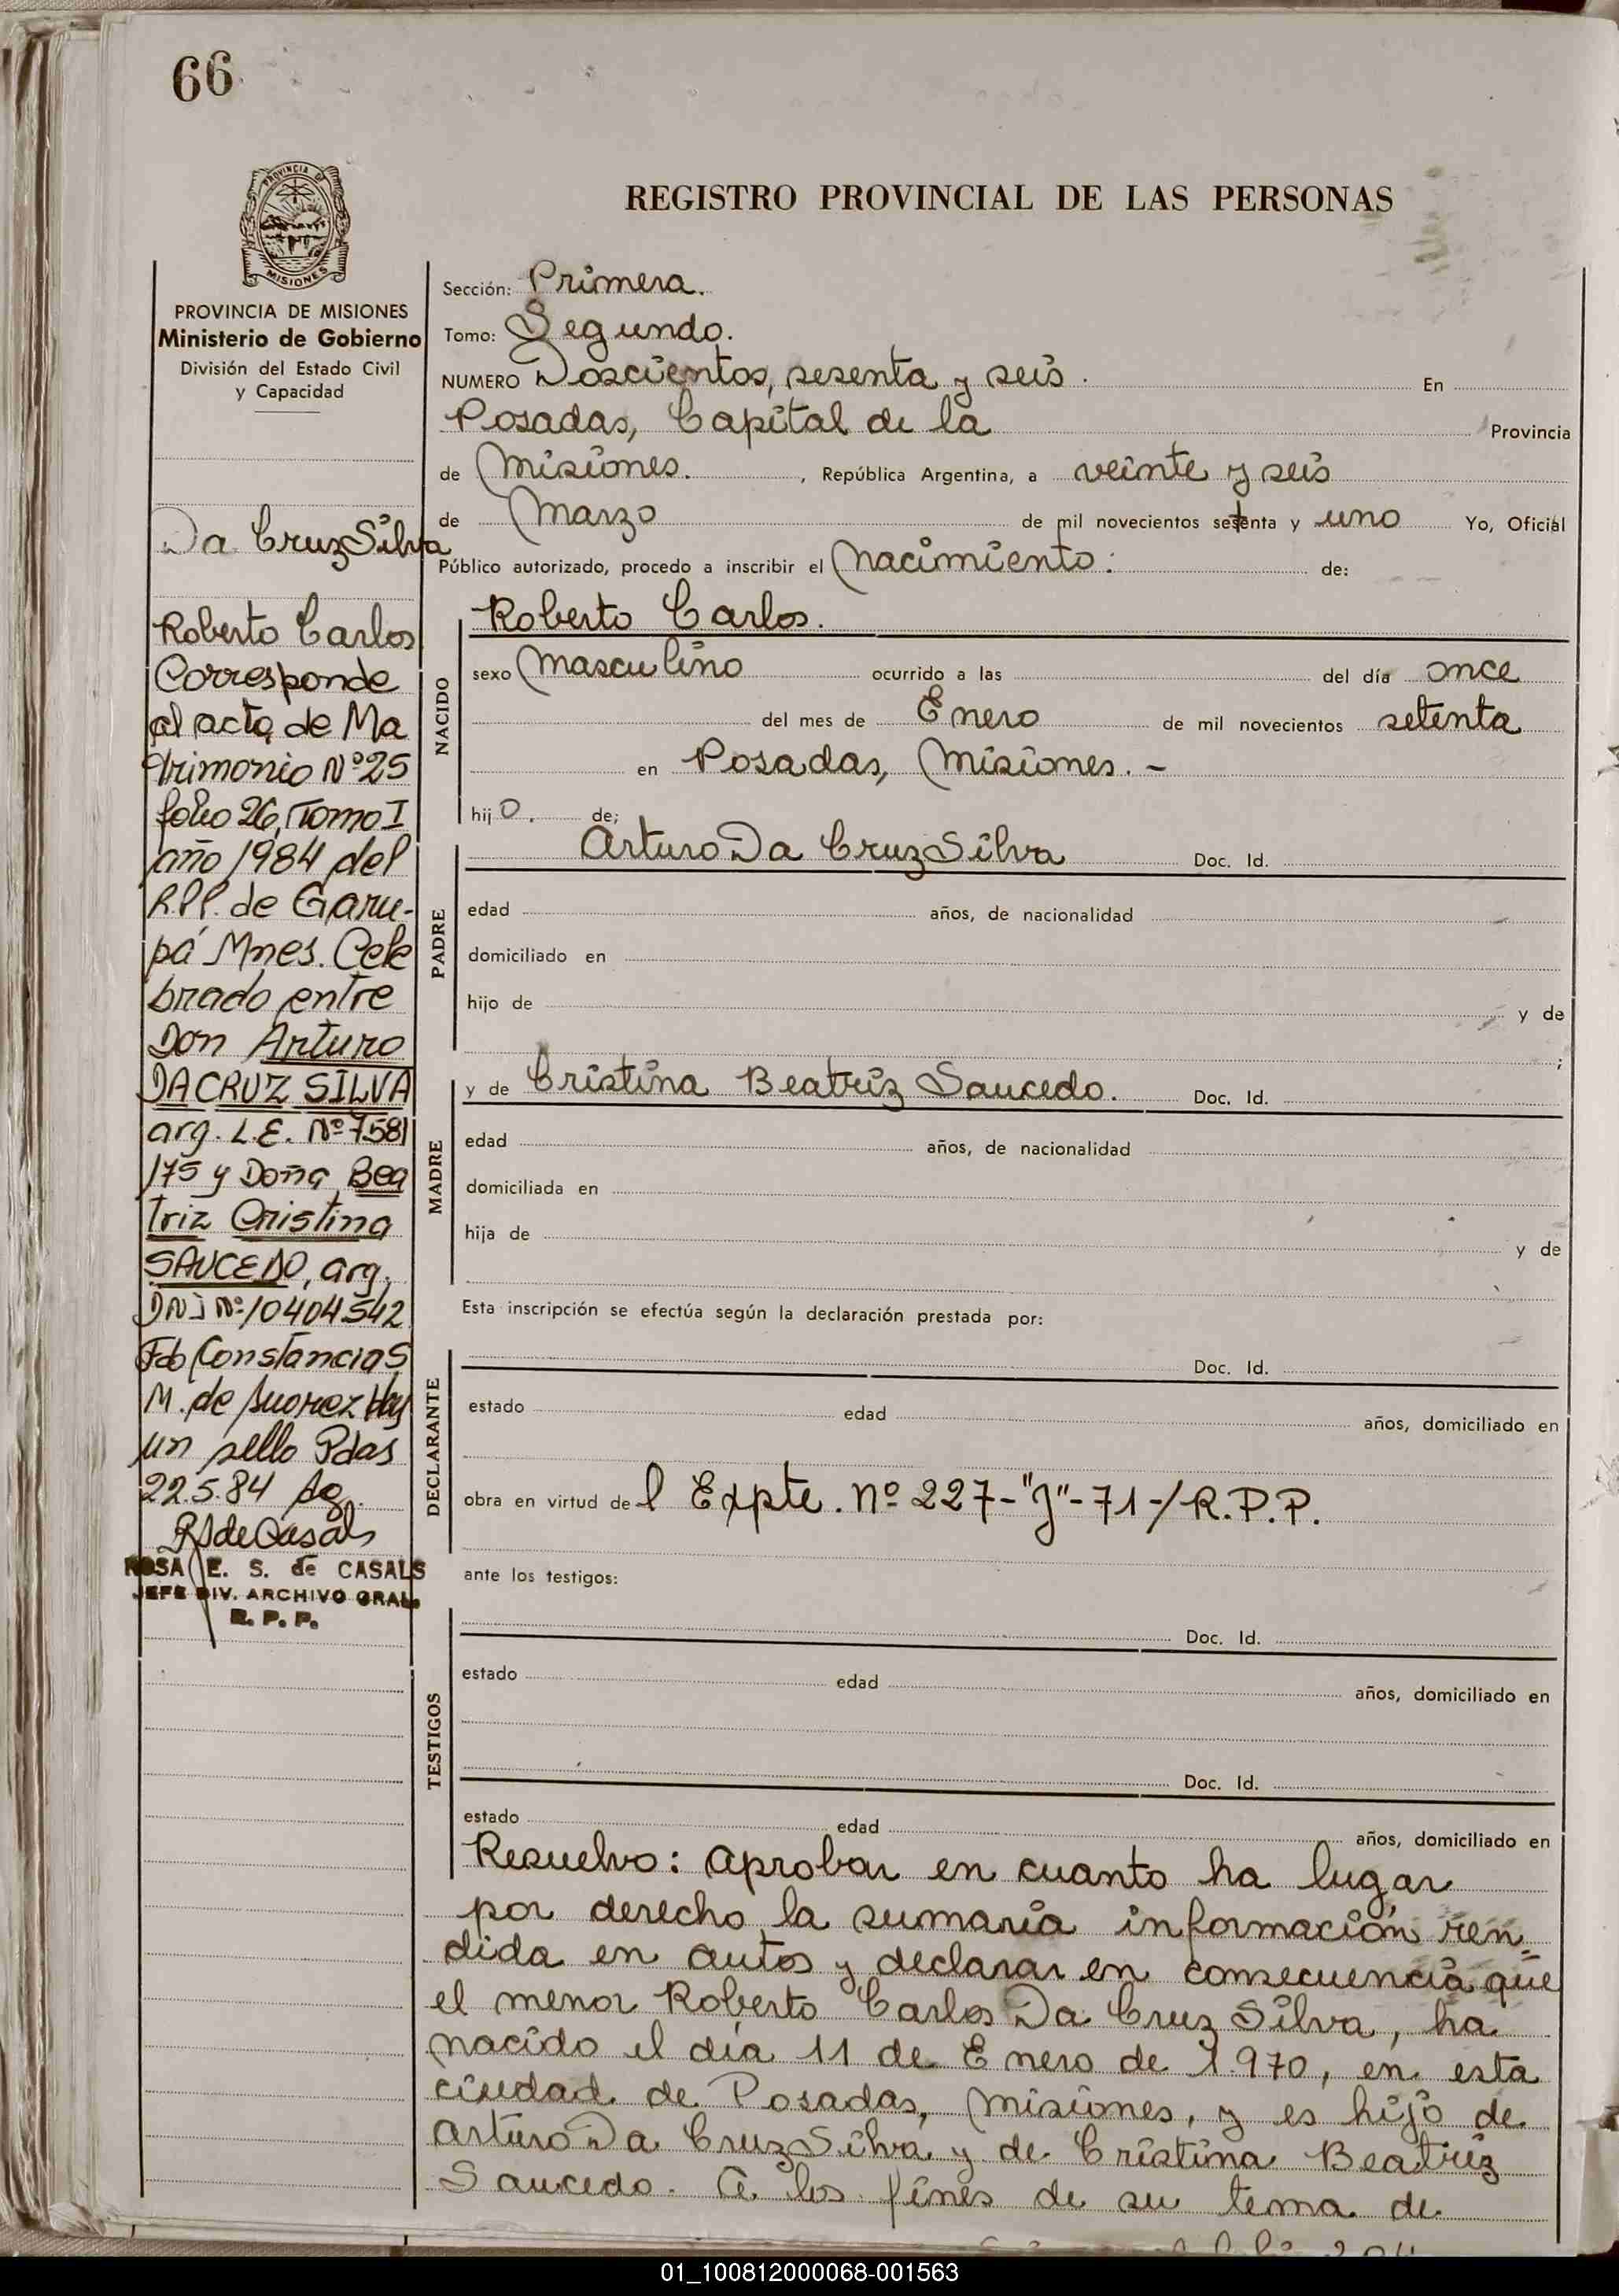 66
PROVINCIA DE MISIONES
REGISTRO PROVINCIAL DE LAS PERSONAS
PROVINCIA DE MISIONES
Ministerio de Gobierno
División del Estado Civil
y Capacidad
Da Cruz Silva
Roberto Carlos
Corresponde
al acta de Ma
trimonio Nº 25
folio 26, Tomo I
año 1984 del
R.P.P. de Garu-
pá Mnes. Cele
brado entre
Don Arturo
DA CRUZ SILVA
arg. L.E. Nº 7581
175 y Doña Bea
triz Cristina
SAUCEDO, arg.
DNI Nº 10404542
Fdo Constancia S
M. de Suarez Hay
un sello Pdas
22.5.84
RSdeCasals
ROSA E. S. de CASALS
JEFE DIV. ARCHIVO GRAL.
R. P. P.
Sección: Primera.
Tomo: Segundo.
NUMERO Doscientos, sesenta y seis. En
Posadas, Capital de la Provincia
de Misiones. , República Argentina, a veinte y seis
de Marzo de mil novecientos setenta y uno Yo, Oficial
Público autorizado, procedo a inscribir el Nacimiento: de:
NACIDO
Roberto Carlos.
sexo Masculino ocurrido a las del día once
del mes de Enero de mil novecientos setenta
en Posadas, Misiones. -
hijo. de;
PADRE
Arturo Da Cruz Silva Doc. Id.
edad años, de nacionalidad
domiciliado en
hijo de y de
;
MADRE
y de Cristina Beatriz Saucedo. Doc. Id.
edad años, de nacionalidad
domiciliada en
hija de y de
Esta inscripción se efectúa según la declaración prestada por:
DECLARANTE
Doc. Id.
estado edad años, domiciliado en
obra en virtud del Expte. Nº 227-"J"-71-/R.P.P.
ante los testigos:
TESTIGOS
Doc. Id.
estado edad años, domiciliado en
Doc. Id.
estado edad años, domiciliado en
Resuelvo: Aprobar en cuanto ha lugar
por derecho la sumaria información ren=
dida en autos y declarar en consecuencia que
el menor Roberto Carlos Da Cruz Silva, ha
nacido el día 11 de Enero de 1.970, en esta
ciudad de Posadas, Misiones, y es hijo de
Arturo Da Cruz Silva y de Cristina Beatriz
Saucedo. A los fines de su tema de
01_100812000068-001563